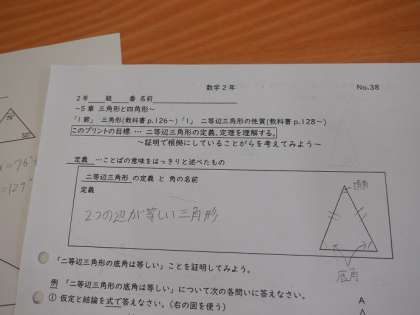 数学2年 No.38
2年 組 番 名前
～5章 三角形と四角形～
「1節」 三角形(教科書p.126～)「1」 二等辺三角形の性質(教科書p.128～)
このプリントの目標 … 二等辺三角形の定義、定理を理解する。
～証明で根拠にしていることがらを考えてみよう～
定義 …ことばの意味をはっきりと述べたもの
二等辺三角形 の定義 と 角の名前
定義
頂角
2つの辺が等しい三角形
底角
「二等辺三角形の底角は等しい」ことを証明してみよう。
例 「二等辺三角形の底角は等しい」について次の各問いに答えなさい。
① 仮定と結論を式で答えなさい。(右の図を使う)
A